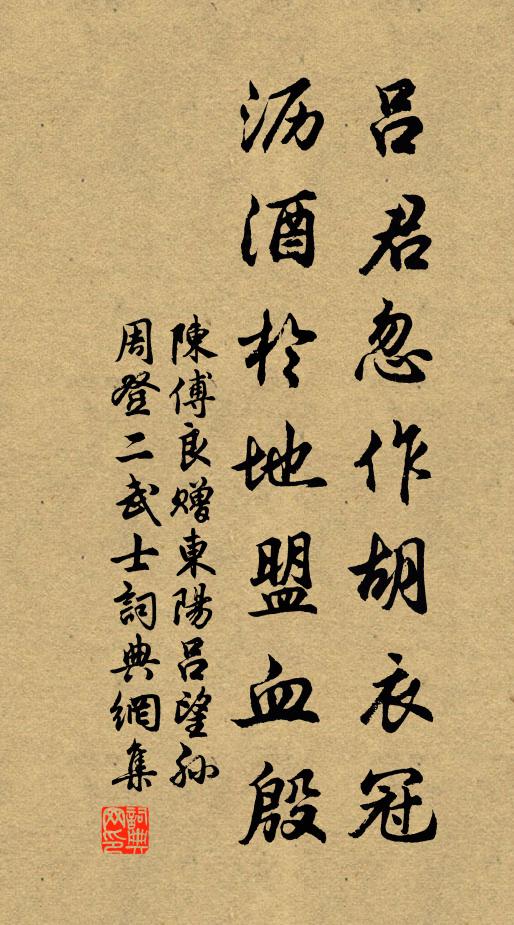 吕君忽作胡衣冠
沥酒於地盟血殷
陳傅良赠東陽吕望孙
周登二武士詞典網集
詞典
网印